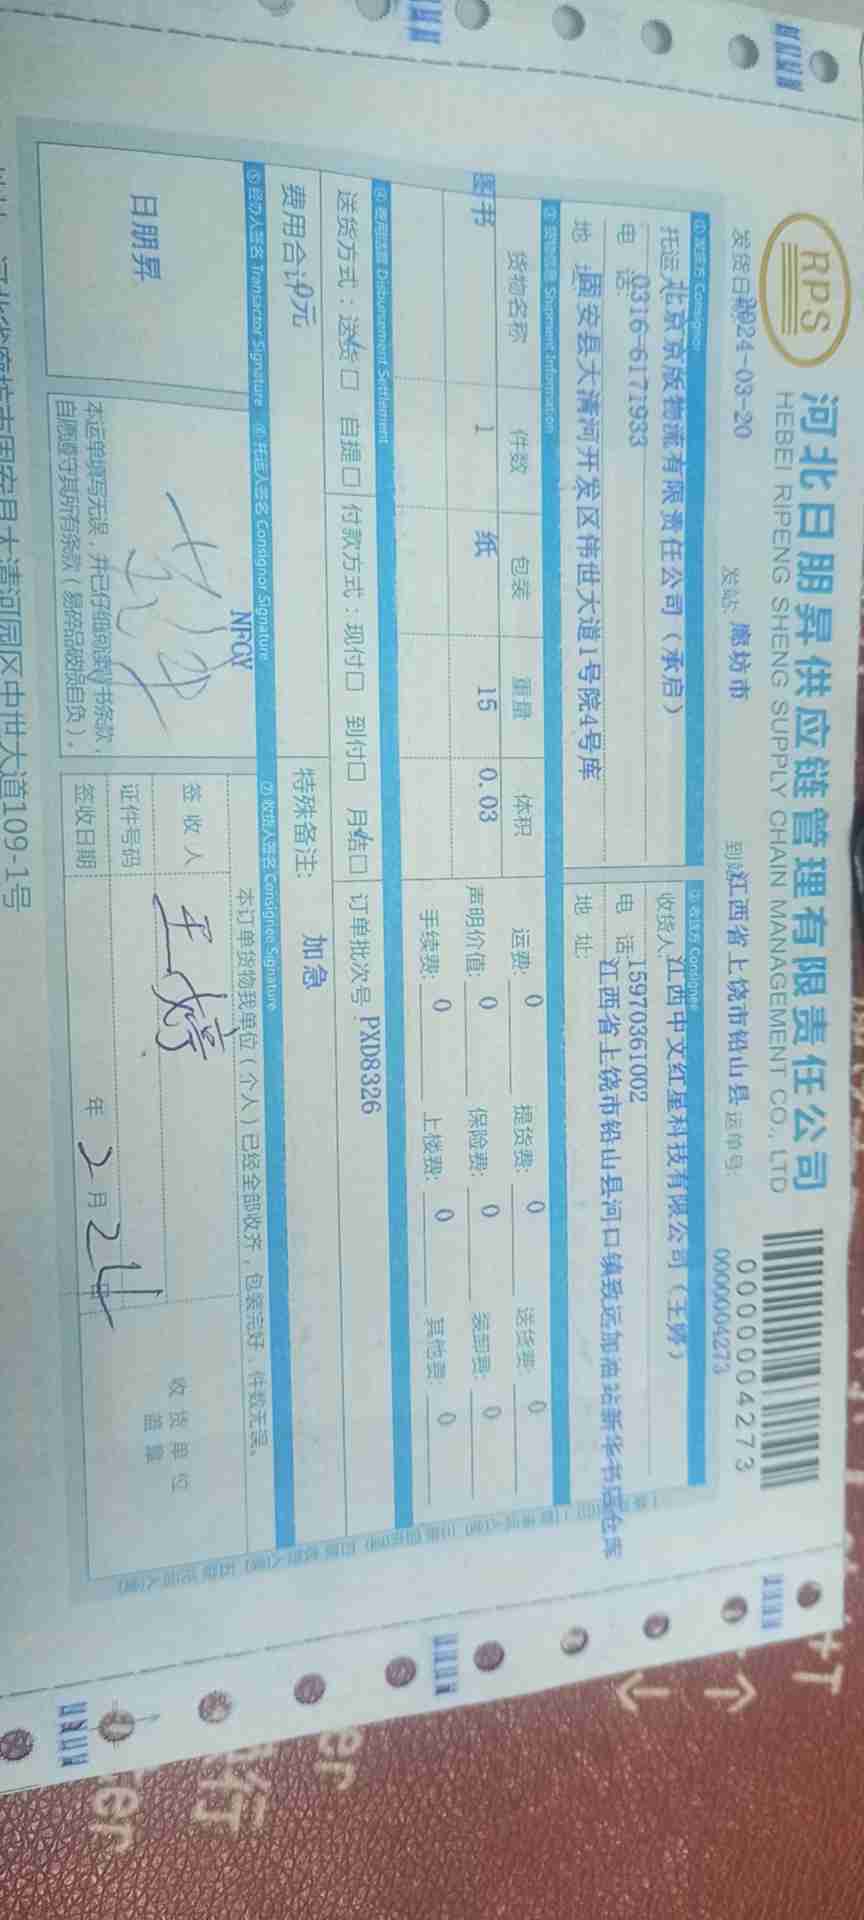 RPS
河北日朋昇供应链管理有限责任公司
HEBEI RIPENG SHENG SUPPLY CHAIN MANAGEMENT CO., LTD
0000004273
发货日期 2024-03-20 发站: 廊坊市 到站 江西省上饶市铅山县 运单号: 0000004273
① 发货方 Consignor
托运 北京京版物流有限责任公司(承启)
电 话: 0316-6171933
地 址 固安县大清河开发区伟世大道1号院4号库
② 收货方 Consignee
收货人 江西中文红星科技有限公司(王婷)
电 话 15970361002
地 址: 江西省上饶市铅山县河口镇致远加油站新华书店仓库
③ 货物信息 Shipment Information
货物名称 件数 包装 重量 体积
图书 1 纸 15 0.03
运费: 0 提货费: 0 送货费: 0
声明价值: 0 保险费: 0 装卸费: 0
手续费: 0 上楼费: 0 其他费: 0
④ 费用结算 Disbursement Settlement
送货方式:送货√口 自提口 付款方式:现付口 到付口 月结√口 订单批次号: PXD8326
费用合计 0元 特殊备注: 加急
⑤ 经办人签名 Transactor Signature
日朋昇
⑥ 托运人签名 Consignor Signature
本运单填写无误,并已仔细阅读背书条款,
自愿遵守其所有条款(易碎品破损自负)。
⑦ 收货人签名 Consignee Signature
本订单货物我单位(个人)已经全部收齐,包装完好,件数无误。
签 收 人 王婷
证件号码
签收日期 年 2 月 24 日
收 货 单 位
盖 章
河北省廊坊市固安县大清河园区中世大道109-1号